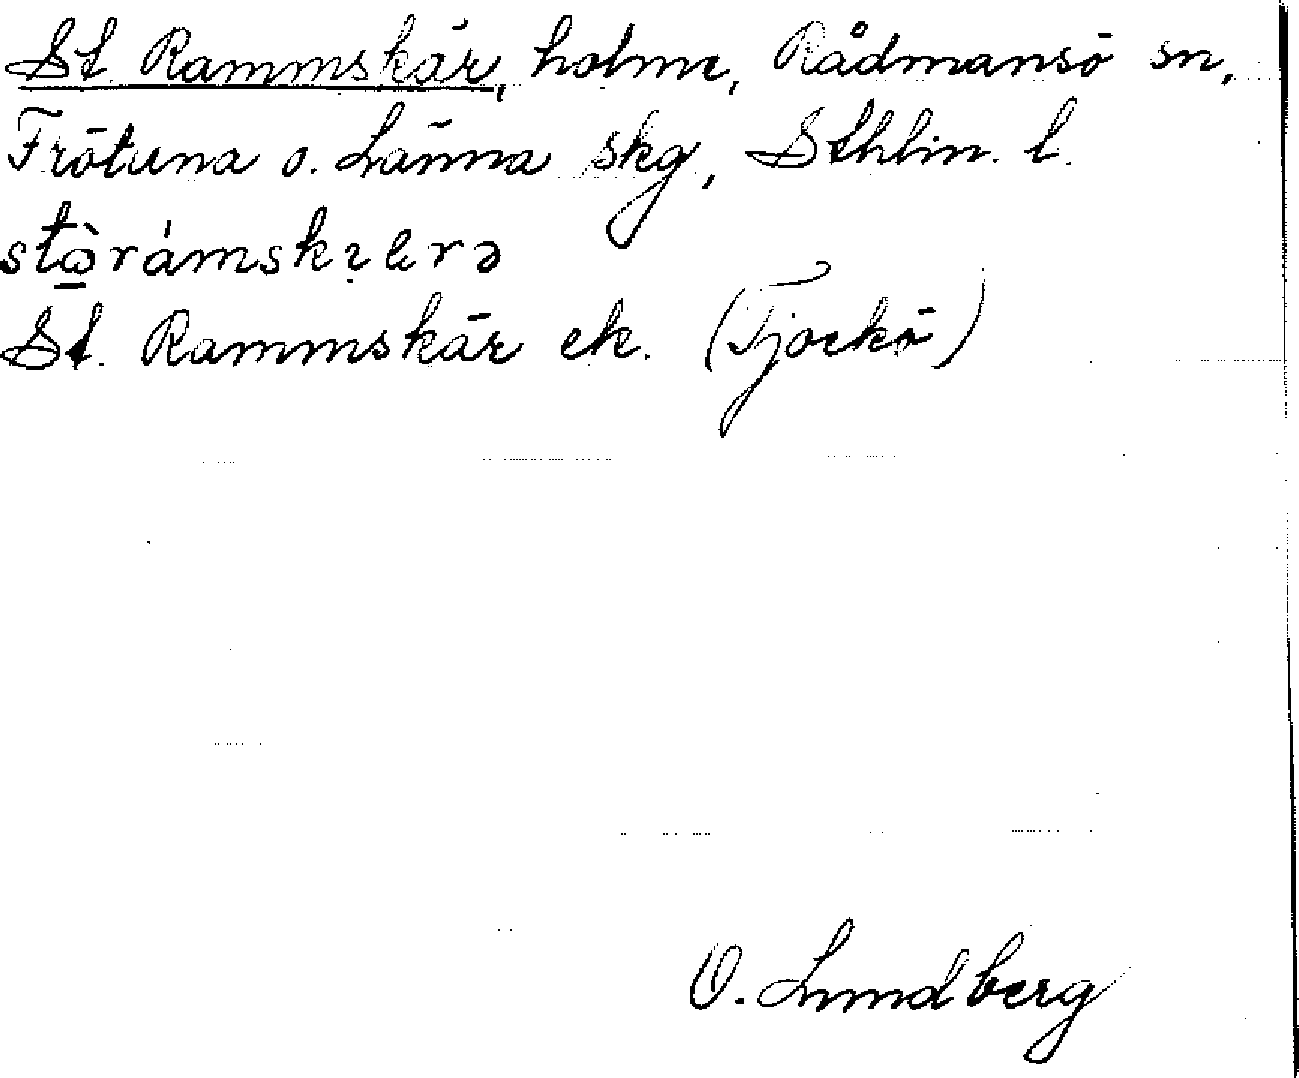 St Rammskär, holme, Rådmansö sn,
Frötuna o. Länna skg, Sthlm. l.
St. Rammskär ek. (Tjockö)
O. Lundberg